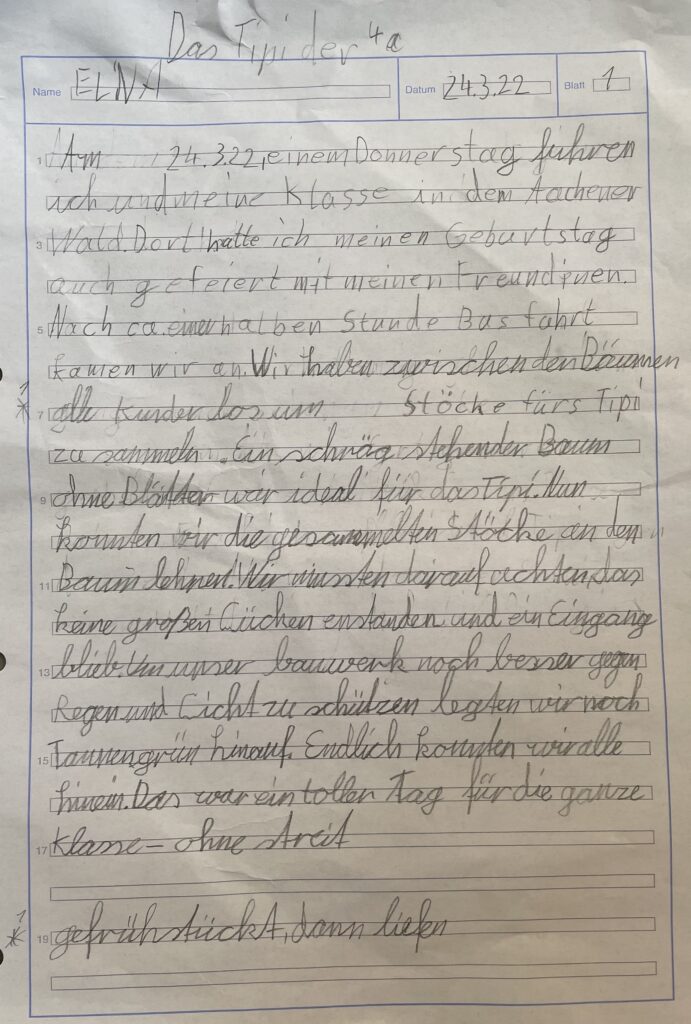 Das Tipi der 4a
Name ELINA Datum 24.3.22 Blatt 1
1 Am 24.3.22, einem Donnerstag führen
ich und meine Klasse in dem Aachener
3 Wald. Dort hatte ich meinen Geburtstag
auch gefeiert mit meinen Freundinen.
5 Nach ca. einer halben Stunde Bus fahrt
kamen wir an. Wir haben zwischen den Bäumen
1
* 7 alle Kinder los um Stöcke fürs Tipi
zu sammeln. Ein schräg stehender Baum
9 ohne Blätter war ideal für das Tipi. Nun
konnten wir die gesammelten Stöcke an den
11 Baum lehnen. Wir mussten darauf achten, das
keine großen Lücken enstanden und ein Eingang
13 blieb. Um unser bauwerk noch besser gegen
Regen und Licht zu schützen legten wir noch
15 Tannengrün hinauf. Endlich konnten wir alle
hinein. Das war ein toller Tag für die ganze
17 Klasse – ohne streit
1
* 19 gefrühstückt, dann liefen